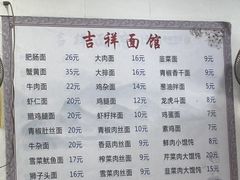 吉祥面馆
肥肠面 26元 大肉面 16元 韭菜面 9元
蟹黄面 35元 大排面 16元 青椒香干面 9元
牛肉面 22元 鸡杂面 16元 葱油拌面 9元
虾仁面 20元 腊肠面 16元 龙虎斗面 9元
猪鸡腿面 20元 虾籽拌面 10元 鸡蛋面 9元
青椒肚丝面 20元 青椒肉丝面 9元 素鸡面 9元
牛杂面 20元 香菇肉丝面 9元 鲜肉小馄饨 9元
雪菜鱿鱼面 17元 榨菜肉丝面 9元 芹菜肉大馄饨 15元
狮子头面 16元 雪菜肉丝面 9元 韭菜肉大馄饨 15元